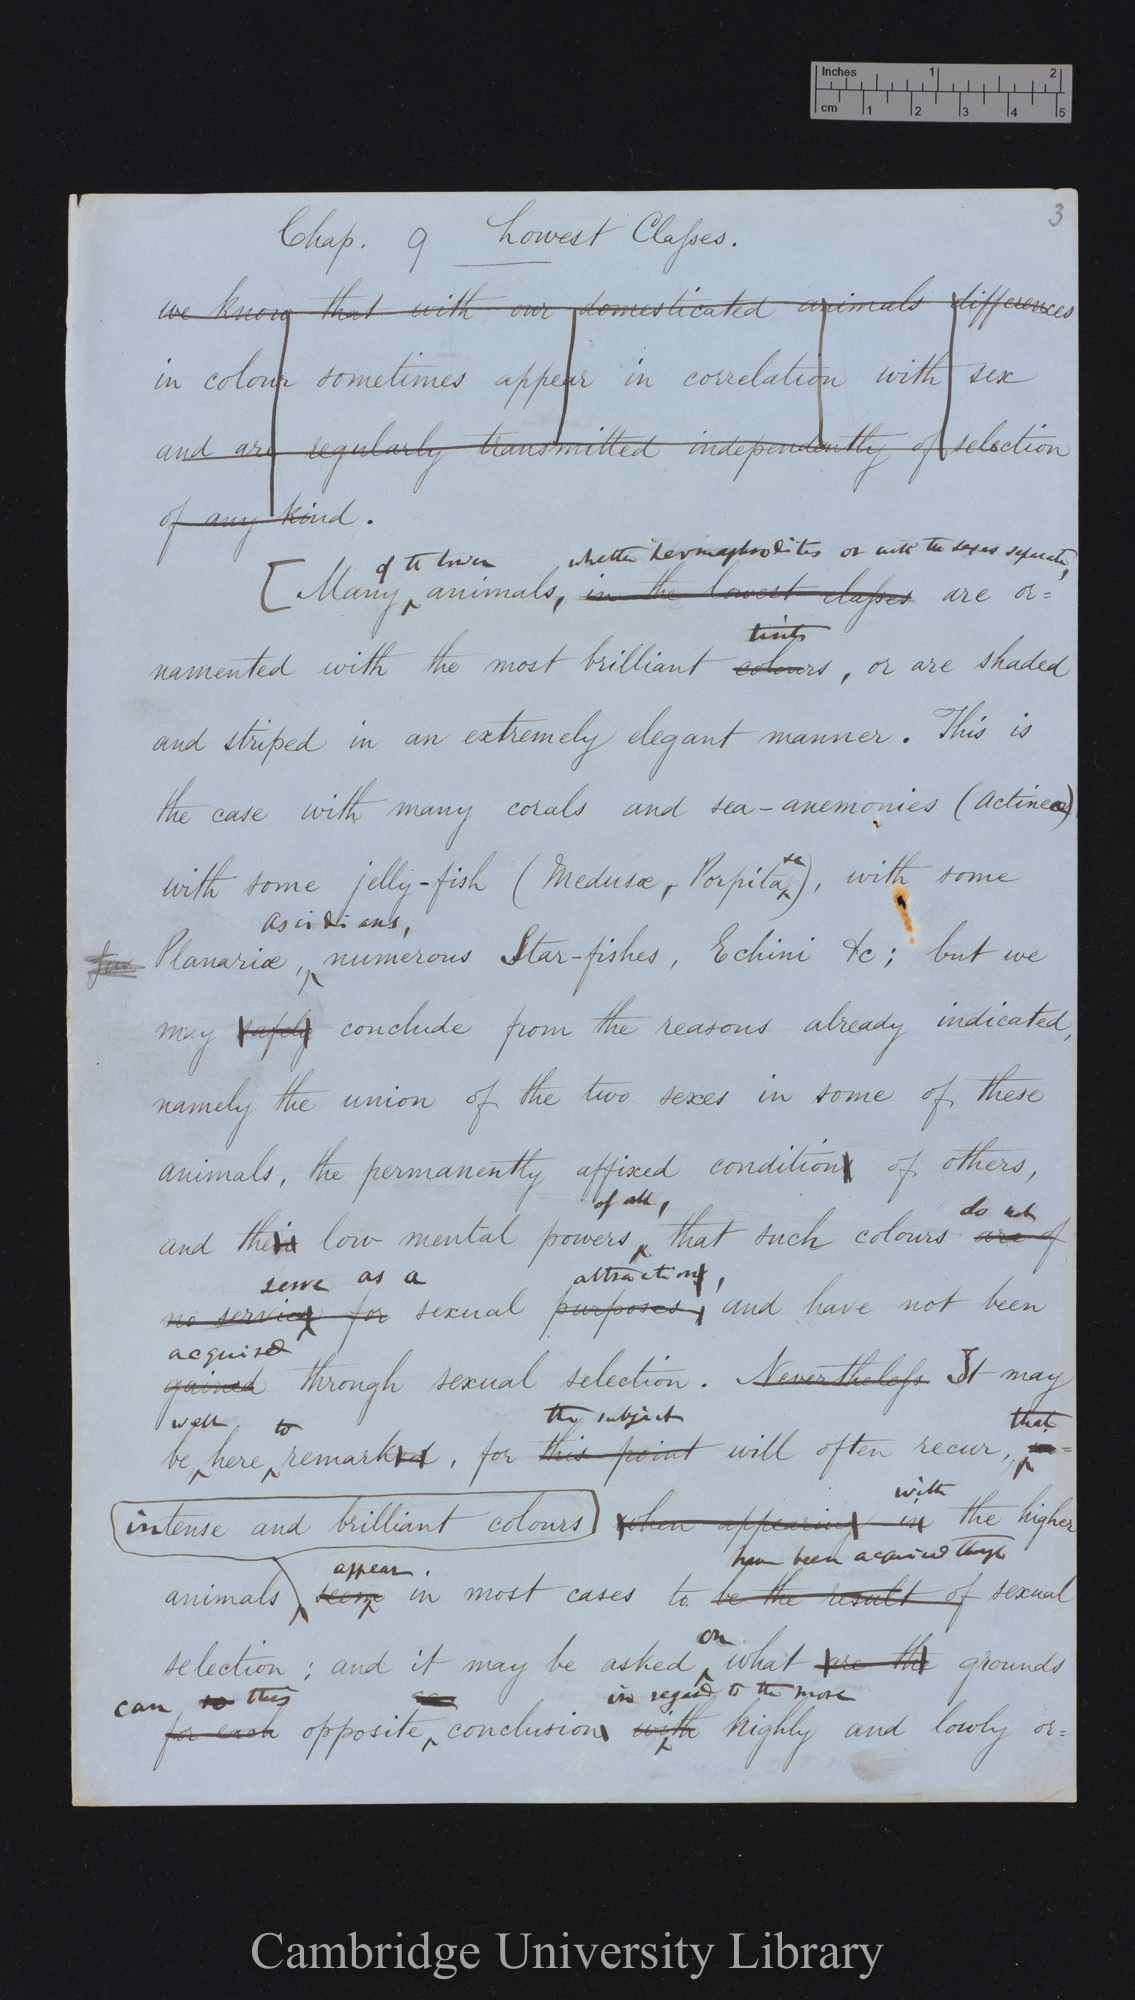 Inches 1 2
cm 1 2 3 4 5
3
Chap. 9 Lowest Classes.
we know that with our domesticated animals differences
in colour sometimes appear in correlation with sex
and are regularly transmitted independently of selection
of any kind.
of the lower whether hermaphrodites or with the sexes separate,
[Many animals, in the lowest classes are or=
tints
namented with the most brilliant colours, or are shaded
and striped in an extremely elegant manner. This is
the case with many corals and sea-anemonies (Actineæ)
with some jelly-fish (Medusæ, Porpita, &c), with some
Ascidians,
Planariæ, numerous Star-fishes, Echini &c; but we
may safely conclude from the reasons already indicated,
namely the union of the two sexes in some of these
animals, the permanently affixed condition of others,
of all, do not
and their low mental powers, that such colours are of
serve as a attraction,
no service for sexual purposes, and have not been
acquired
gained through sexual selection. Nevertheless It may
well to this subject that
be here remarked, for this point will often recur,
with
intense and brilliant colours when appearing in the higher
appear have been acquired through
animals seem in most cases to be the result of sexual
on
selection; and it may be asked what are the grounds
can this in regard to the more
for each opposite conclusion with highly and lowly or=
Cambridge University Library